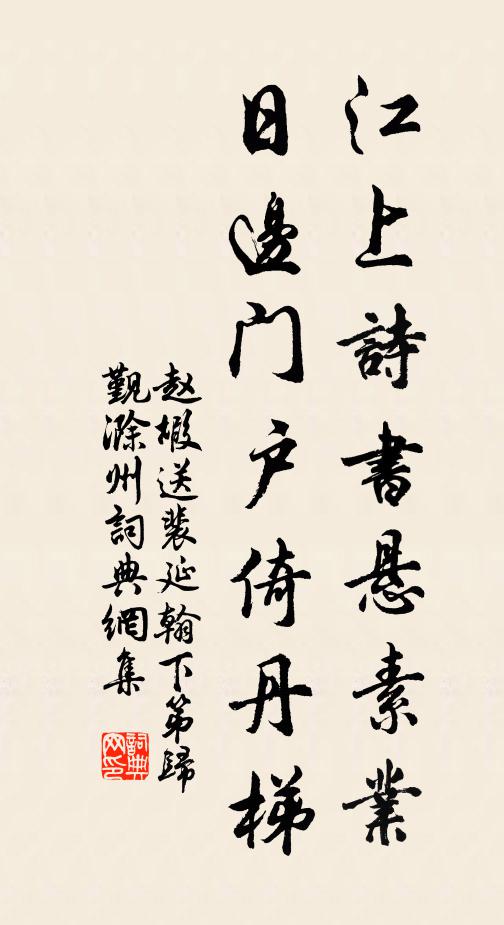 江上詩書悬素業
日邊門户倚丹梯
赵嘏送裴延翰下第歸
觐滁州詞典網集
詞典网印